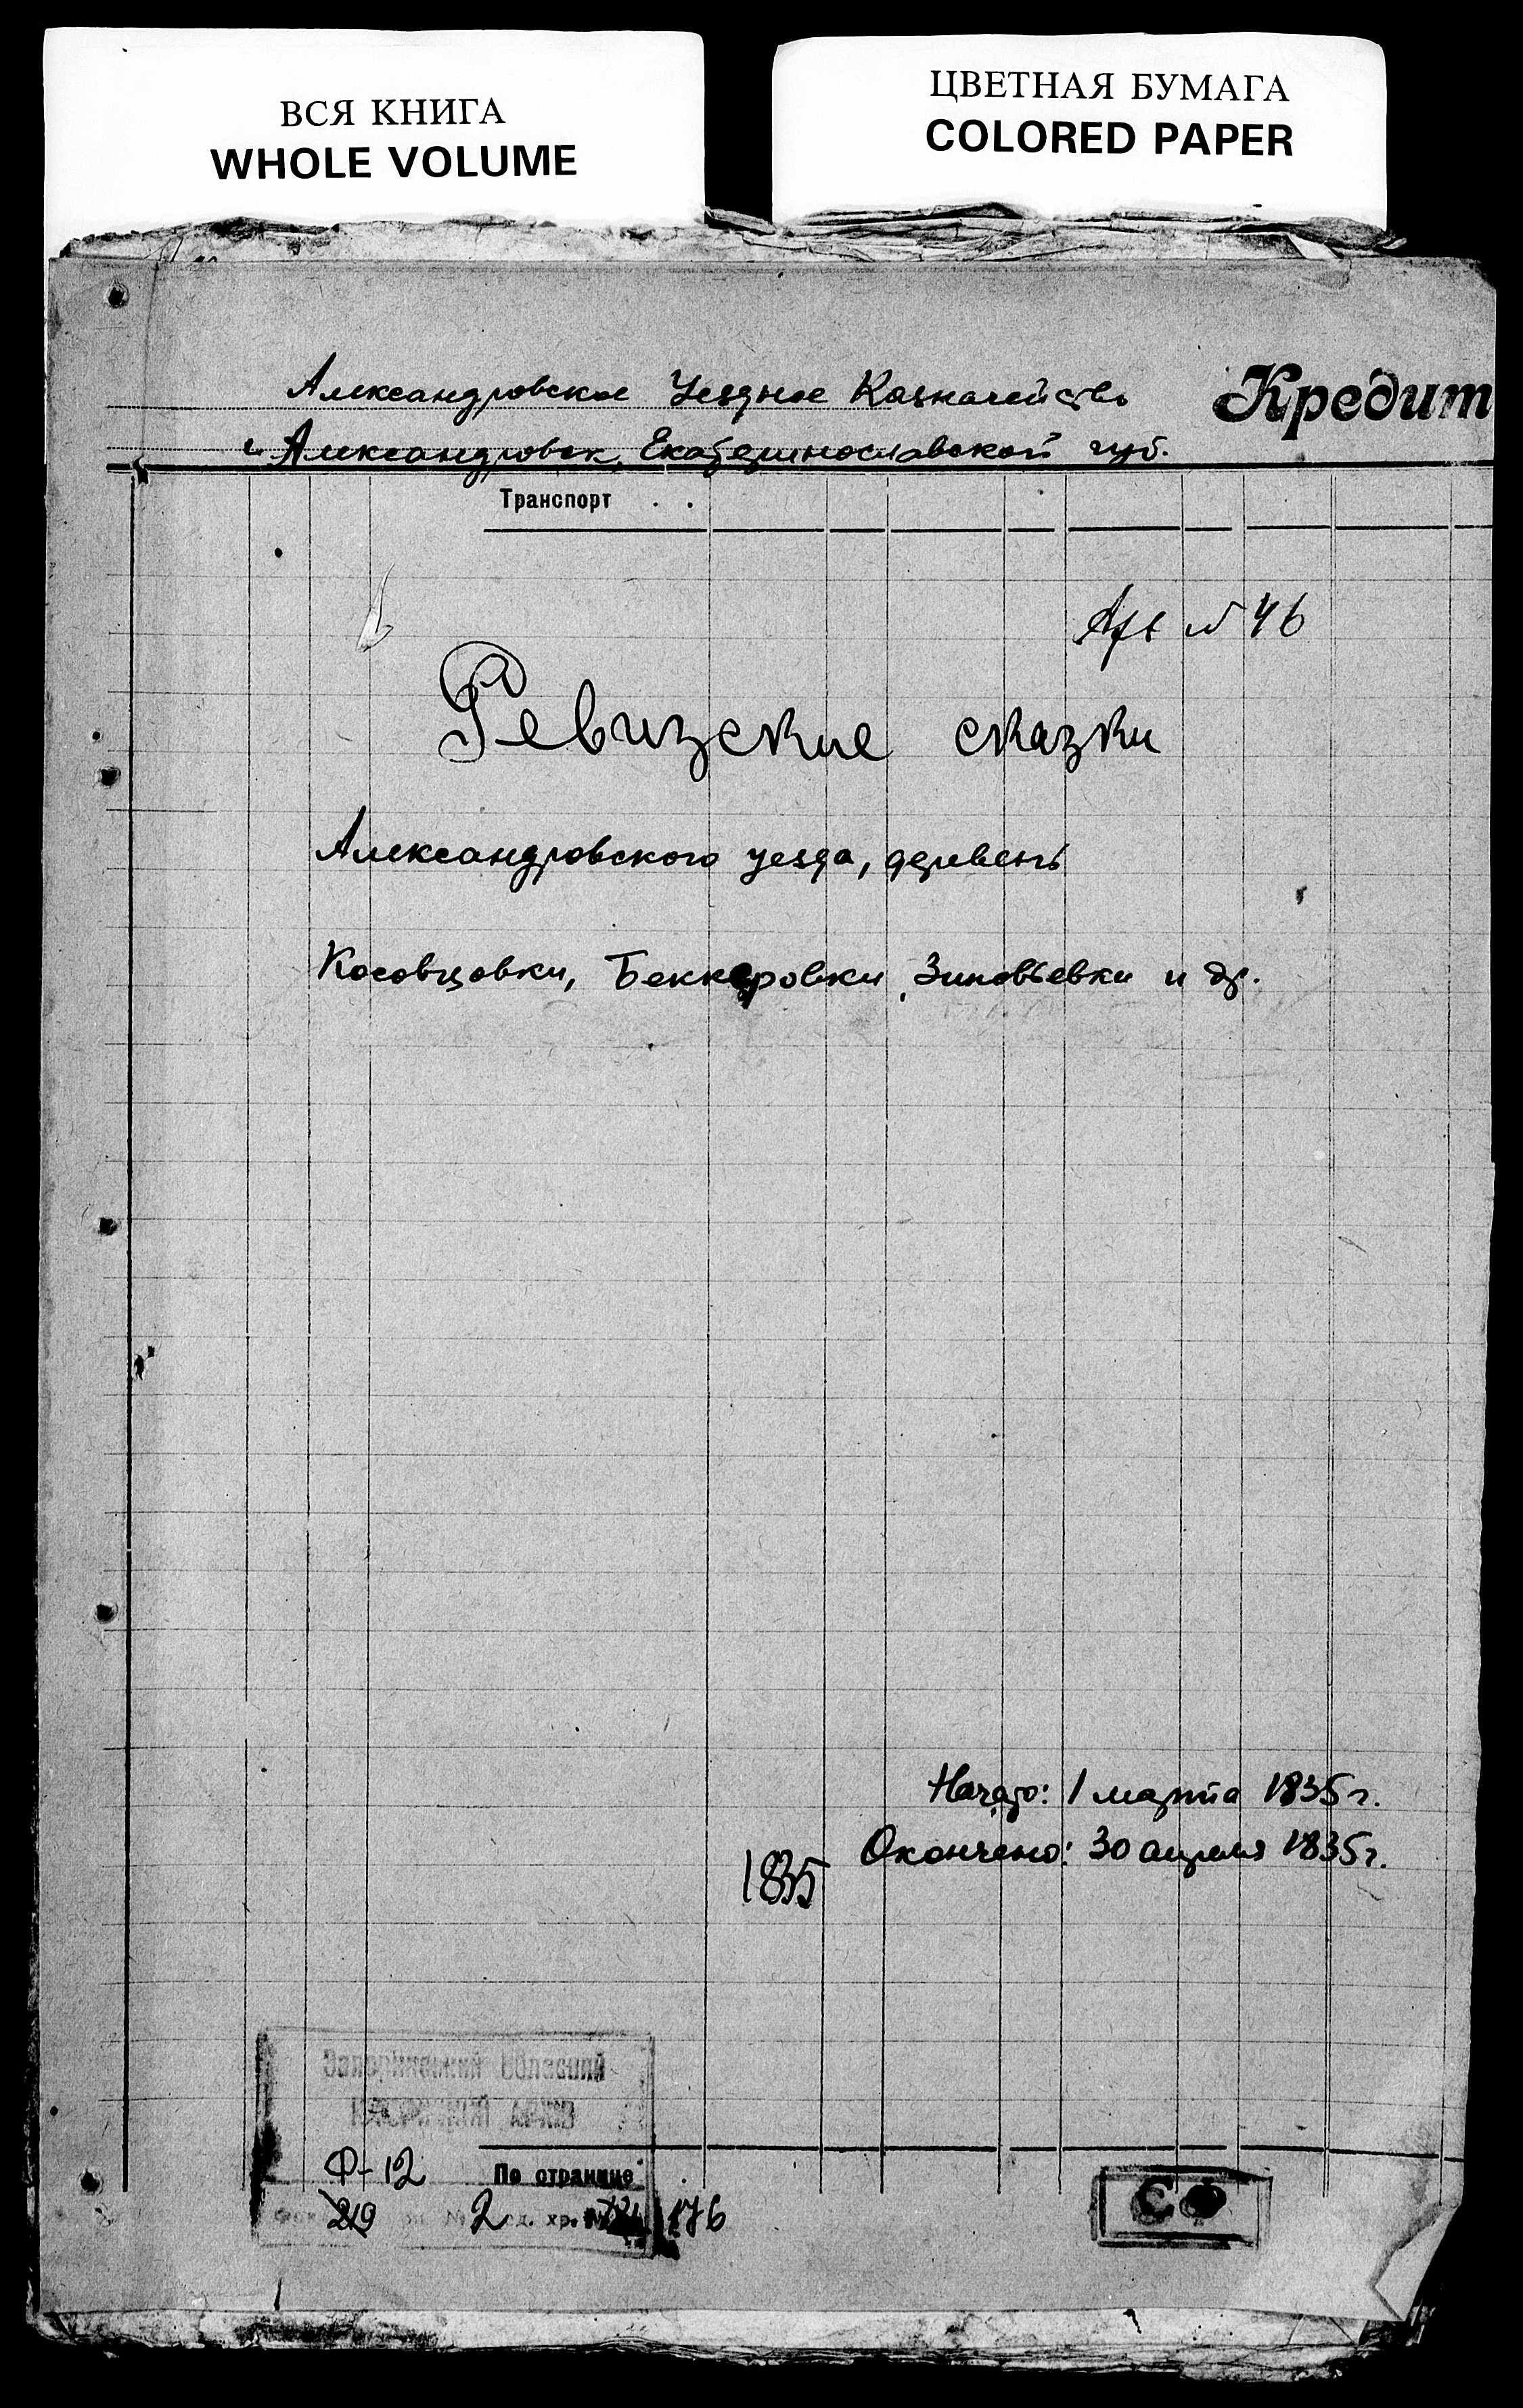 ВСЯ КНИГА
WHOLE VOLUME
ЦВЕТНАЯ БУМАГА
COLORED PAPER
Александровское Уездное Казначейство
Кредит
г. Александровск, Екатеринославской губ.
Транспорт . .
№ 46
Ревизские сказки
Александровского уезда, деревень
Косовцовки, Беккеровки, Зиновьевки и др.
Начато: 1 марта 1835 г.
Окончено: 30 апреля 1835 г.
1835
Запорізький Обласний
Ф-12
По странице
219 2 од. хр. 176
СФ